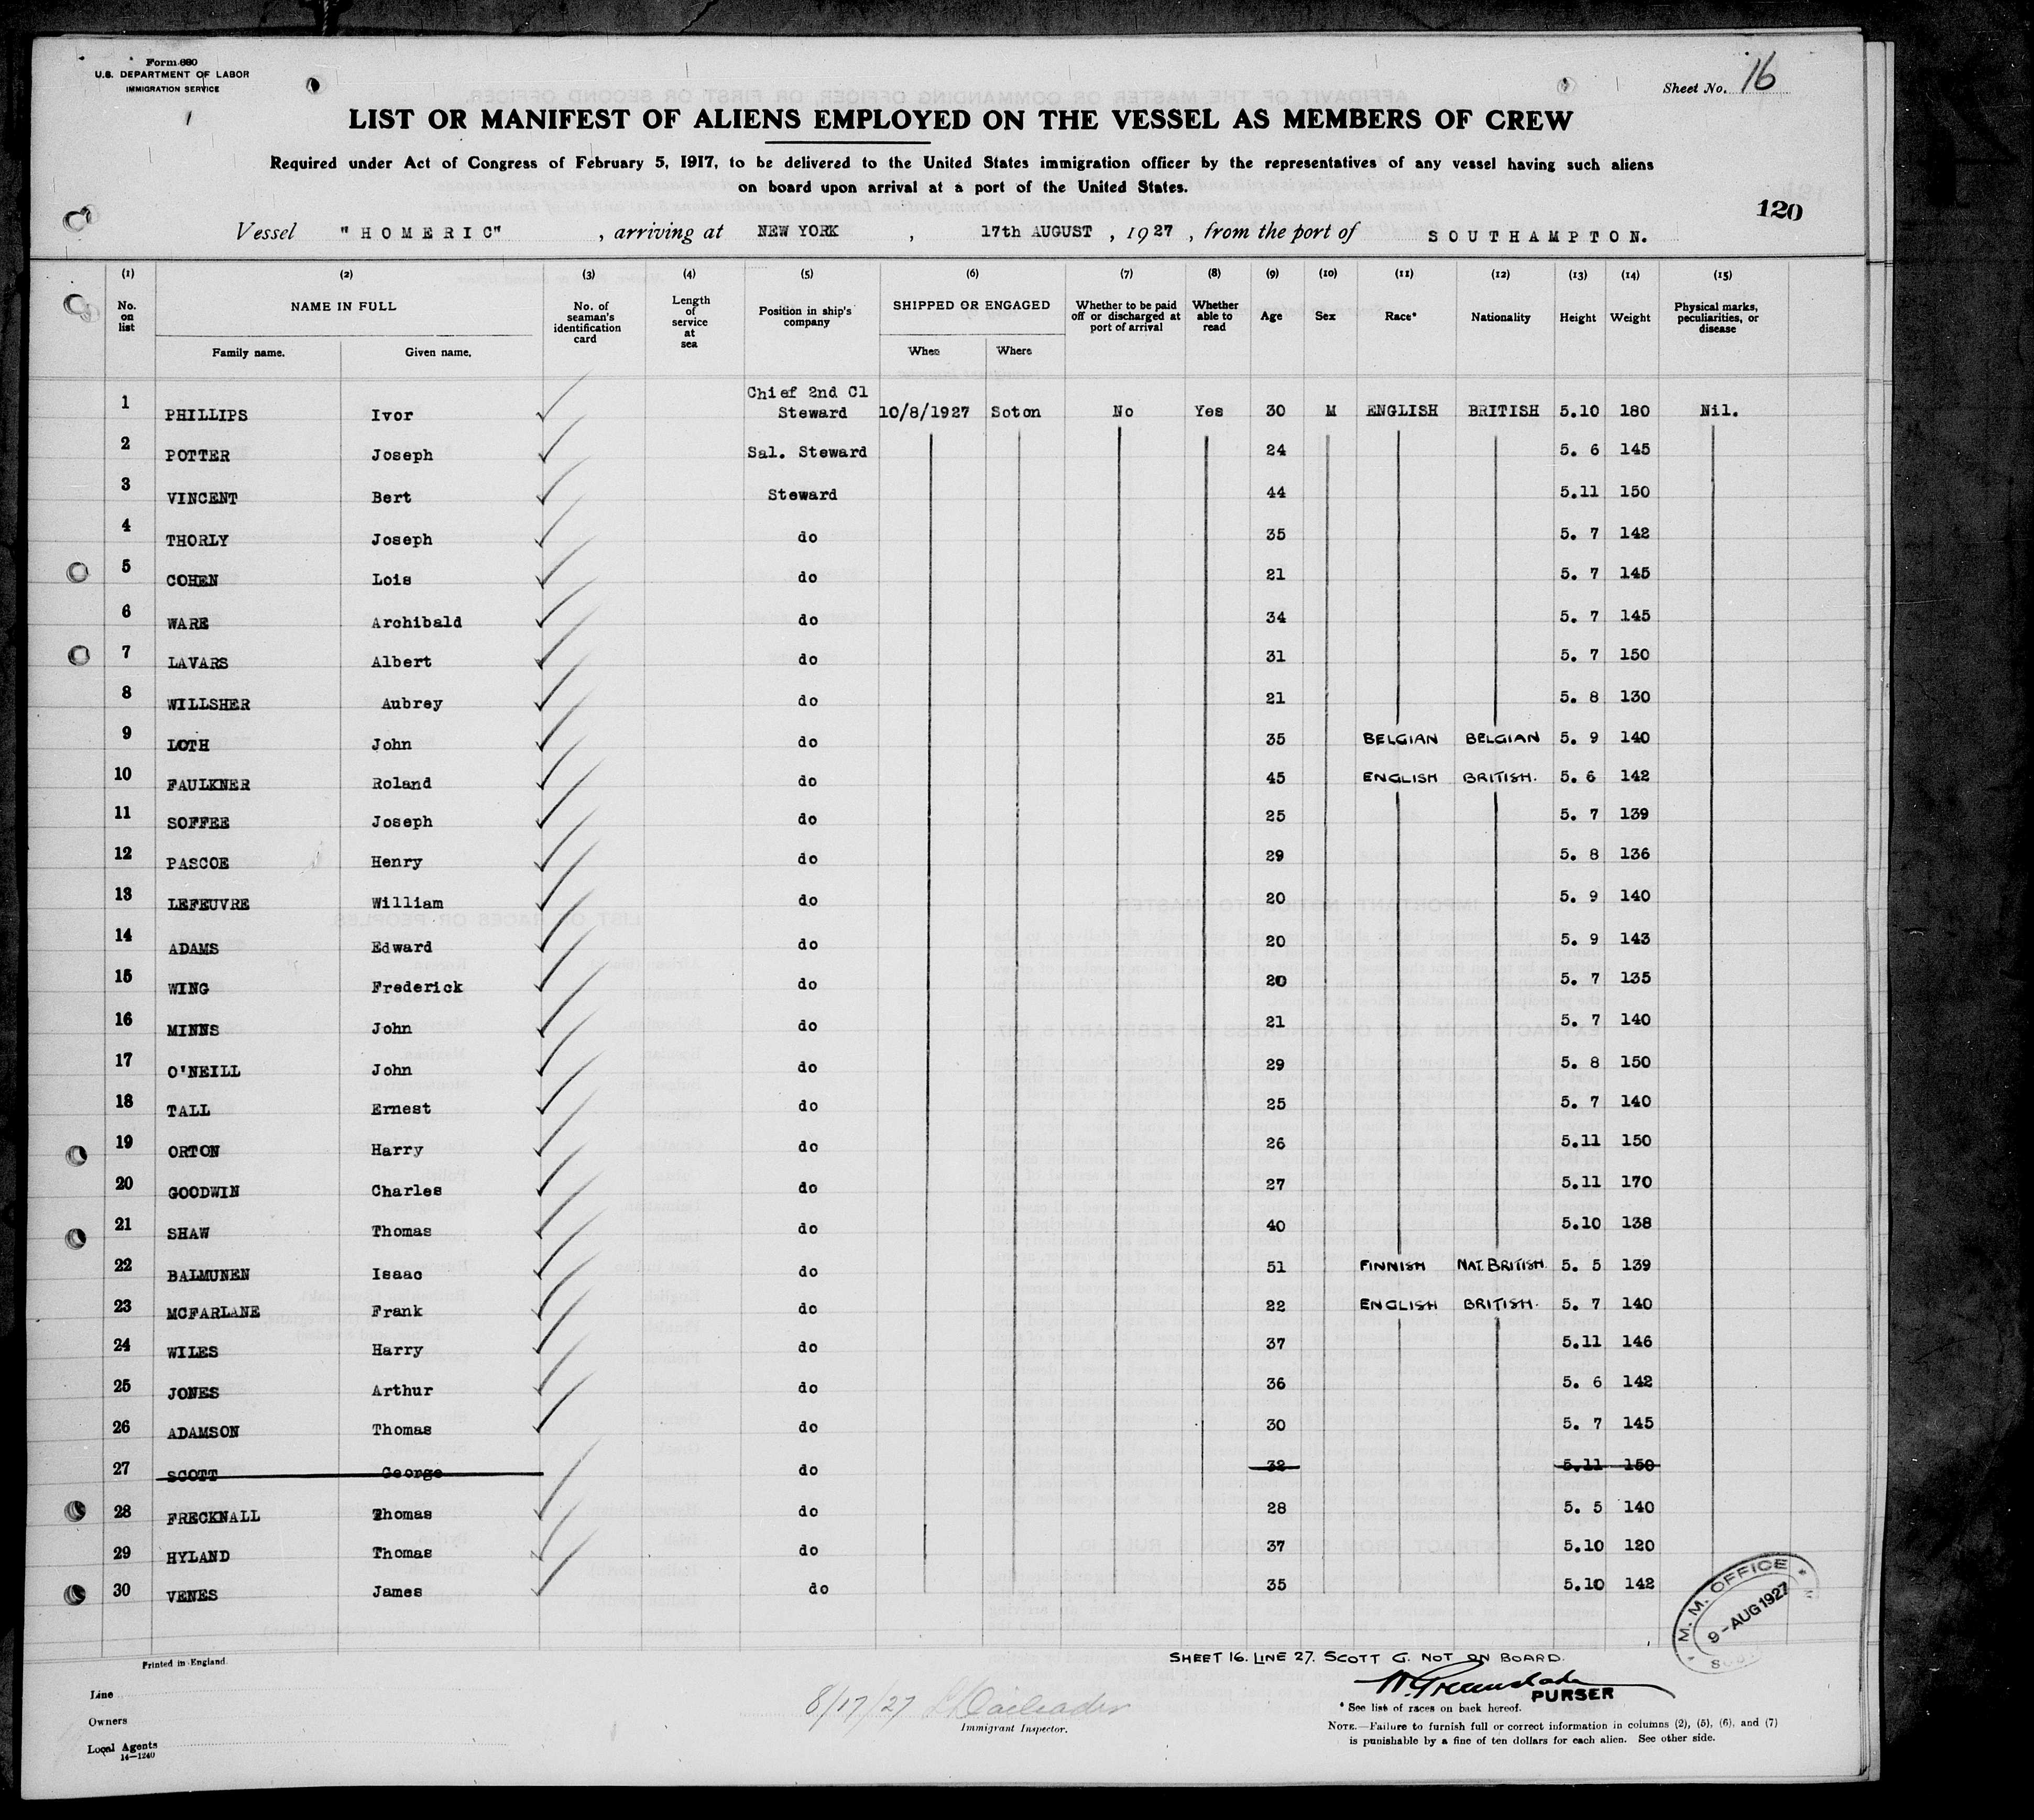 Form 680
U.S. DEPARTMENT OF LABOR
IMMIGRATION SERVICE
Sheet No. 16
LIST OR MANIFEST OF ALIENS EMPLOYED ON THE VESSEL AS MEMBERS OF CREW
Required under Act of Congress of February 5, 1917, to be delivered to the United States immigration officer by the representatives of any vessel having such aliens
on board upon arrival at a port of the United States.
120
Vessel "HOMERIC", arriving at NEW YORK, 17th AUGUST, 1927, from the port of SOUTHAMPTON.
(1) (2) (3) (4) (5) (6) (7) (8) (9) (10) (11) (12) (13) (14) (15)
No. on list NAME IN FULL Family name. Given name. No. of seaman's identification card Length of service at sea Position in ship's company SHIPPED OR ENGAGED When Where Whether to be paid off or discharged at port of arrival Whether able to read Age Sex Race* Nationality Height Weight Physical marks, peculiarities, or disease
1 PHILLIPS Ivor Chief 2nd Cl Steward 10/8/1927 Soton No Yes 30 M ENGLISH BRITISH 5.10 180 Nil.
2 POTTER Joseph Sal. Steward 24 5. 6 145
3 VINCENT Bert Steward 44 5.11 150
4 THORLY Joseph do 35 5. 7 142
5 COHEN Lois do 21 5. 7 145
6 WARE Archibald do 34 5. 7 145
7 LAVARS Albert do 31 5. 7 150
8 WILLSHER Aubrey do 21 5. 8 130
9 LOTH John do 35 BELGIAN BELGIAN 5. 9 140
10 FAULKNER Roland do 45 ENGLISH BRITISH. 5. 6 142
11 SOFFEE Joseph do 25 5. 7 139
12 PASCOE Henry do 29 5. 8 136
13 LEFEUVRE William do 20 5. 9 140
14 ADAMS Edward do 20 5. 9 143
15 WING Frederick do 20 5. 7 135
16 MINNS John do 21 5. 7 140
17 O'NEILL John do 29 5. 8 150
18 TALL Ernest do 25 5. 7 140
19 ORTON Harry do 26 5.11 150
20 GOODWIN Charles do 27 5.11 170
21 SHAW Thomas do 40 5.10 138
22 BALMUNEN Isaac do 51 FINNISH NAT. BRITISH. 5. 5 139
23 MCFARLANE Frank do 22 ENGLISH BRITISH. 5. 7 140
24 WILES Harry do 37 5.11 146
25 JONES Arthur do 36 5. 6 142
26 ADAMSON Thomas do 30 5. 7 145
27 SCOTT George do 32 5.11 150
28 FRECKNALL Thomas do 28 5. 5 140
29 HYLAND Thomas do 37 5.10 120
30 VENES James do 35 5.10 142
M. M. OFFICE
9-AUG 1927
Printed in England.
SHEET 16. LINE 27. SCOTT G. NOT ON BOARD.
PURSER
Line
Owners
Local Agents
14-1240
8/17/27
Immigrant Inspector.
* See list of races on back hereof.
NOTE.—Failure to furnish full or correct information in columns (2), (5), (6), and (7)
is punishable by a fine of ten dollars for each alien. See other side.